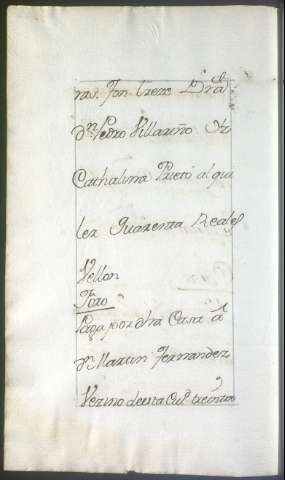 ras. Jon
Dn. Pedro Villariño
Cathalina Prieto alqui
ler Quarenta Reales
Vellon
Foro
Paga por dha Casa á
Dn. Martin Fernandez
Vezino de esta treinta